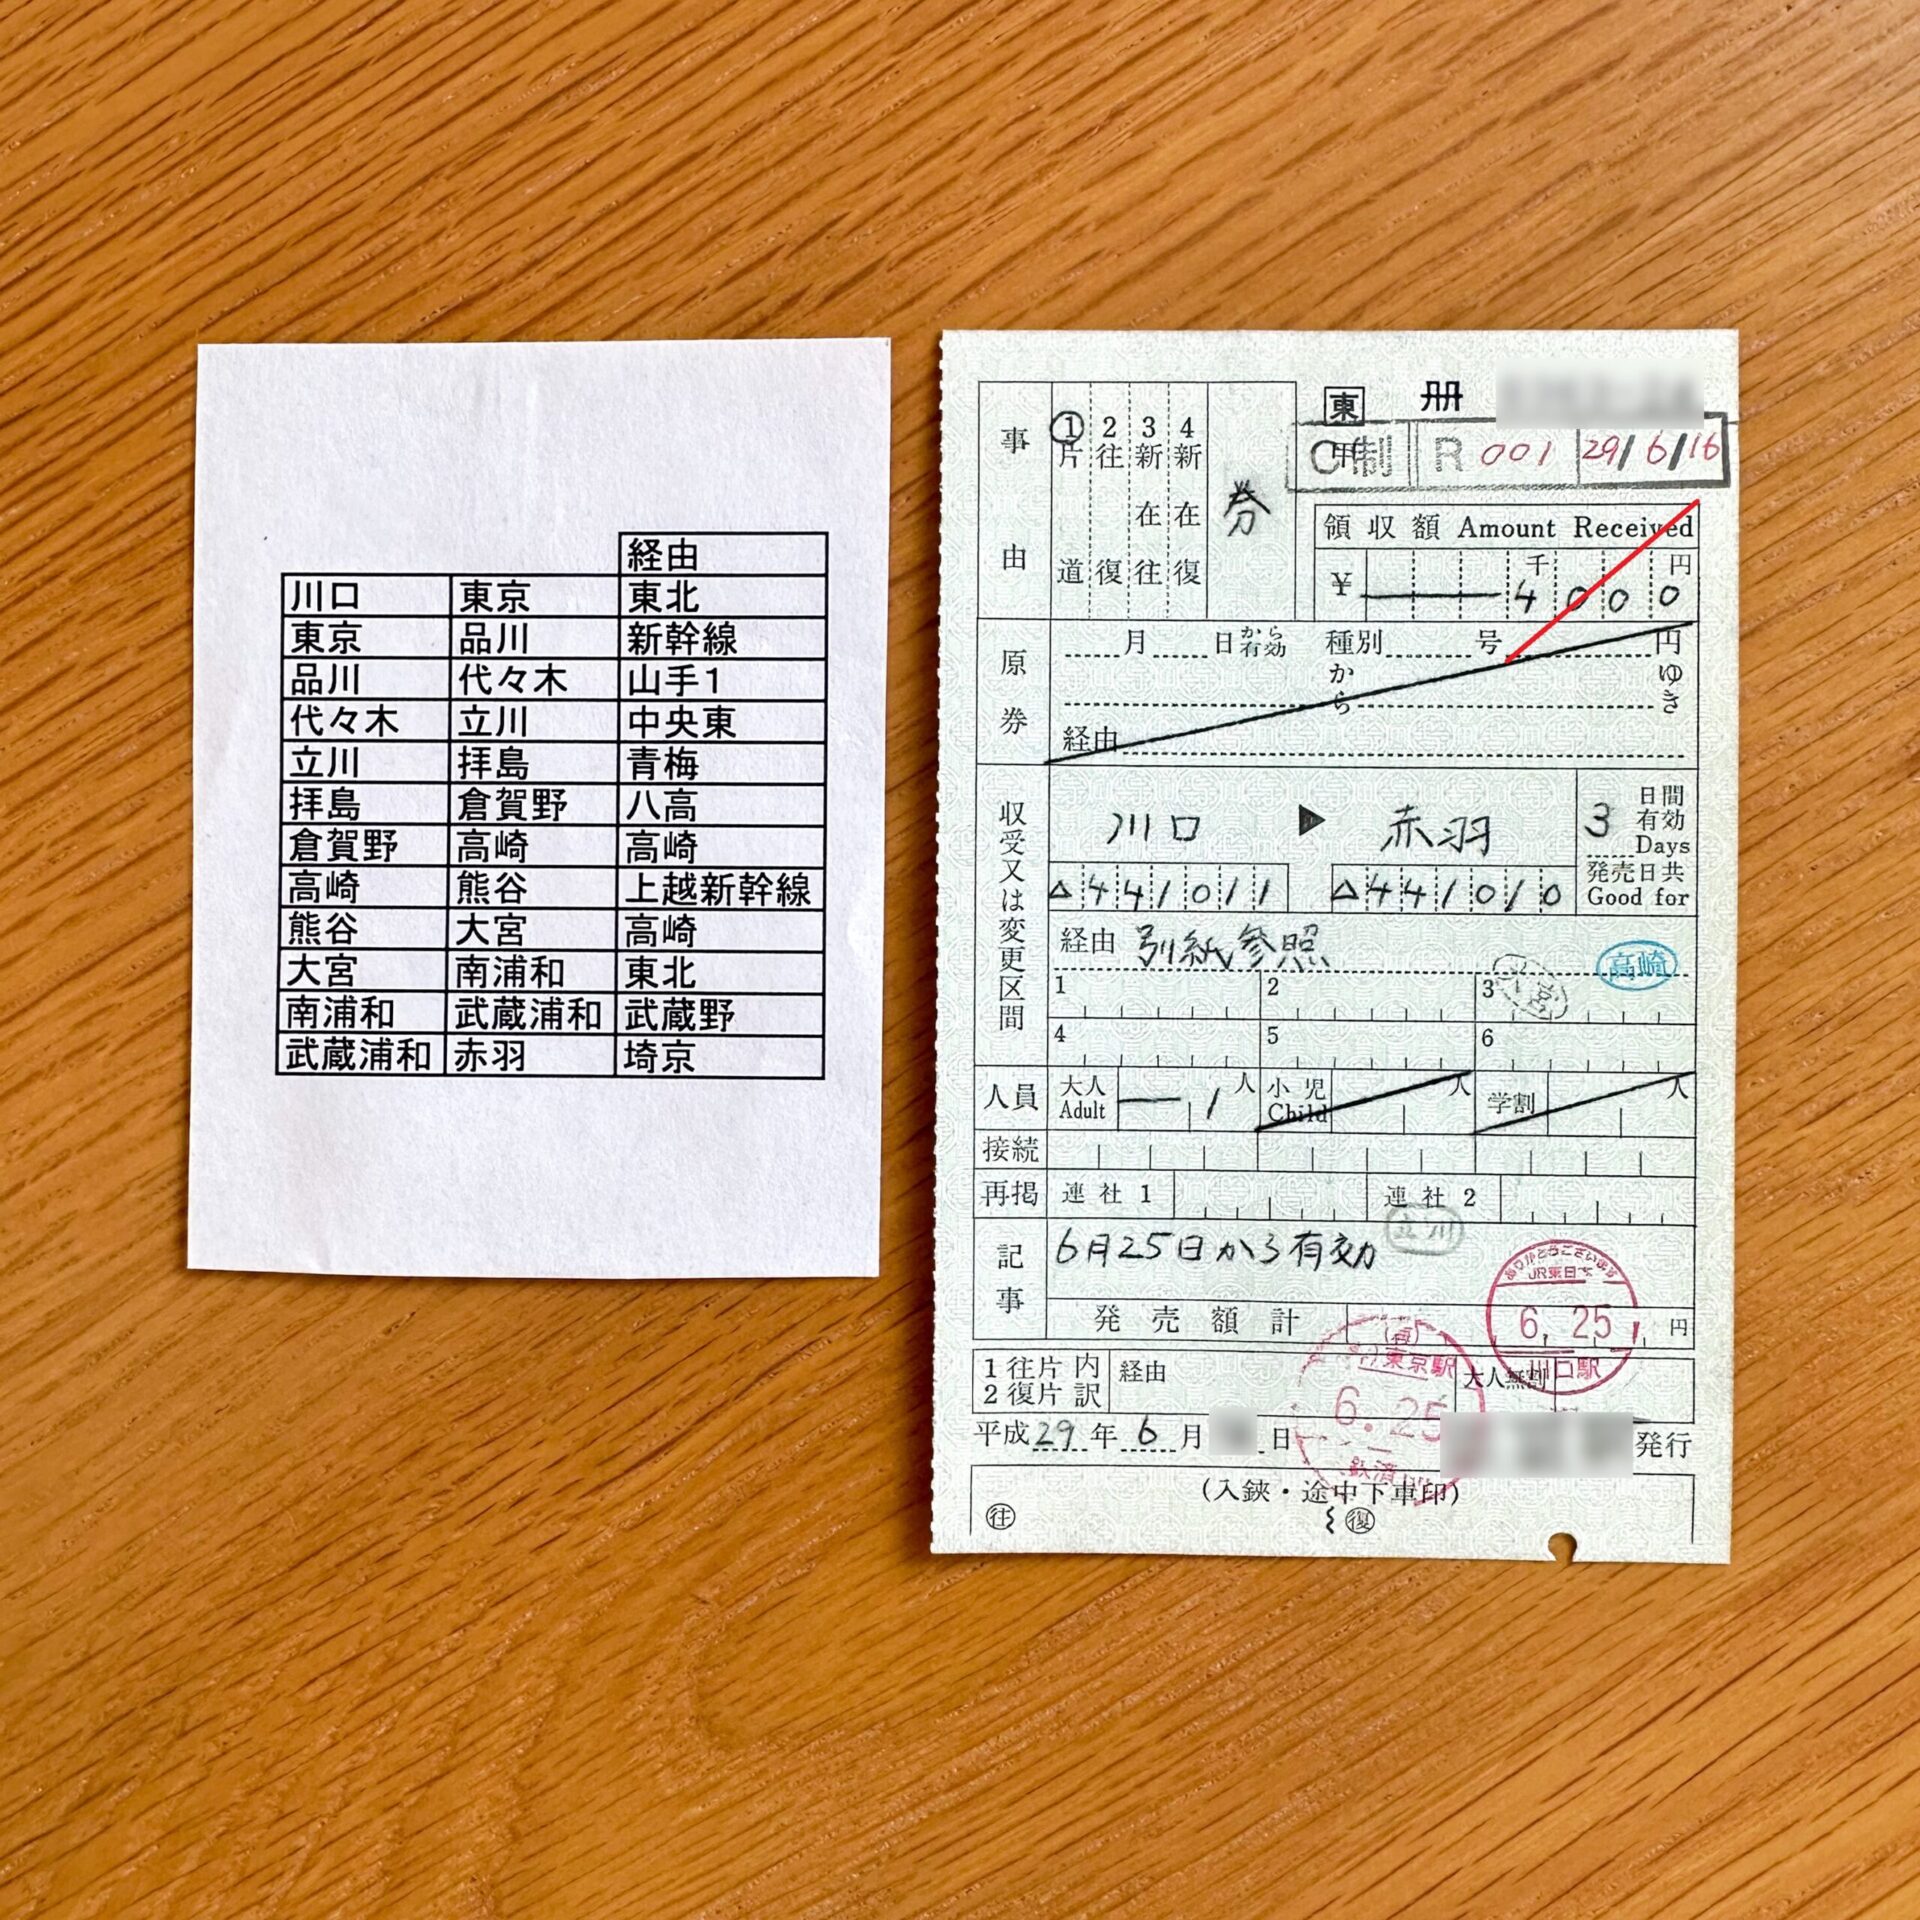 経由
川口 東京 東北
東京 品川 新幹線
品川 代々木 山手1
代々木 立川 中央東
立川 拝島 青梅
拝島 倉賀野 八高
倉賀野 高崎 高崎
高崎 熊谷 上越新幹線
熊谷 大宮 高崎
大宮 南浦和 東北
南浦和 武蔵浦和 武蔵野
武蔵浦和 赤羽 埼京
東 冊
C制 R 001 29/6/16
事由
1片道
2往復
3新在往
4新在復
券
領収額 Amount Received
¥ 4000 千 円
原券
月 日から有効 種別 号 円
から ゆき
経由
収受又は変更区間
川口 ▶ 赤羽
3 日間有効 Days
発売日共 Good for
△441011 △441010
経由 別紙参照
高崎
1 2 3
4 5 6
人員 大人 Adult 1 人 小児 Child 人 学割 人
接続
再掲 連社1 連社2
立川
記事
6月25日から有効
JR東日本
6.25
川口駅
発売額計 円
東京駅
6.25
1往片内
2復片訳
経由
大人無割
平成29年6月 日 発行
(入鋏・途中下車印)
往 復